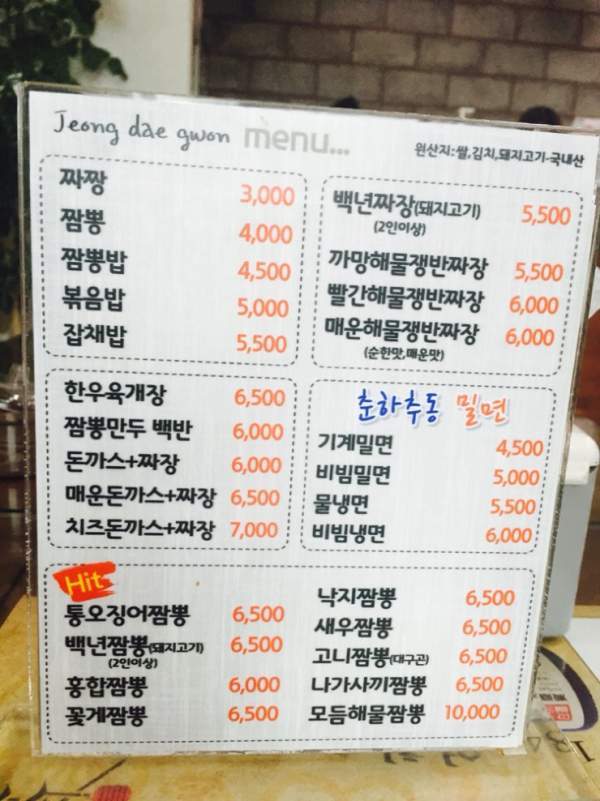 Jeong dae gwon menu...
원산지:쌀,김치,돼지고기-국내산
짜짱 3,000
짬뽕 4,000
짬뽕밥 4,500
볶음밥 5,000
잡채밥 5,500
백년짜장(돼지고기) 5,500
(2인이상)
까망해물쟁반짜장 5,500
빨간해물쟁반짜장 6,000
매운해물쟁반짜장 6,000
(순한맛,매운맛)
한우육개장 6,500
짬뽕만두 백반 6,000
돈까스+짜장 6,000
매운돈까스+짜장 6,500
치즈돈까스+짜장 7,000
춘하추동 밀면
기계밀면 4,500
비빔밀면 5,000
물냉면 5,500
비빔냉면 6,000
Hit
통오징어짬뽕 6,500
백년짬뽕(돼지고기) 6,500
(2인이상)
홍합짬뽕 6,000
꽃게짬뽕 6,500
낙지짬뽕 6,500
새우짬뽕 6,500
고니짬뽕(대구곤) 6,500
나가사끼짬뽕 6,500
모듬해물짬뽕 10,000